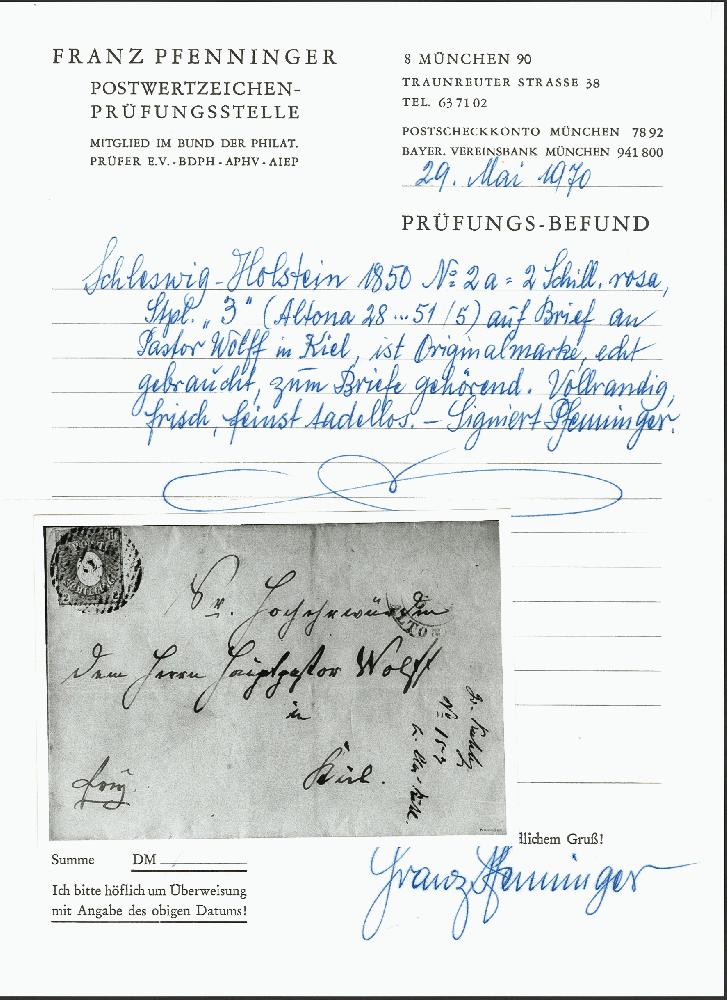 FRANZ PFENNINGER
POSTWERTZEICHEN-
PRÜFUNGSSTELLE
MITGLIED IM BUND DER PHILAT.
PRÜFER E.V. - BDPH - APHV - AIEP
8 MÜNCHEN 90
TRAUNREUTER STRASSE 38
TEL. 63 71 02
POSTSCHECKKONTO MÜNCHEN 78 92
BAYER. VEREINSBANK MÜNCHEN 941 800
29. Mai 1970
PRÜFUNGS-BEFUND
Schleswig-Holstein 1850 No 2a = 2 Schill. rosa,
Stpl. „3“ (Altona 28 ... 51 / 5) auf Brief an
Pastor Wolff in Kiel, ist Originalmarke, echt
gebraucht, zum Briefe gehörend. Vollrandig,
frisch, feinst tadellos. – Signiert Pfenninger.
Sr. Hochehrwürden
ALTON
dem Herrn Hauptpastor Wolff
in
Kiel.
No 15-2
dlichem Gruß!
Summe DM
Franz Pfenninger
Ich bitte höflich um Überweisung
mit Angabe des obigen Datums!